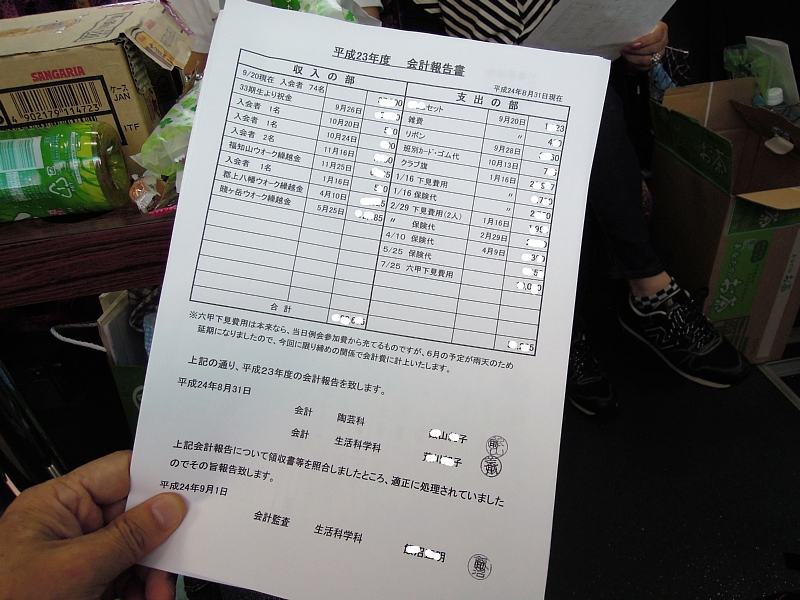 平成23年度 会計報告書
平成24年8月31日現在
収入の部
9/20現在 入会者 74名
33期生より祝金 9月26日
入会者 1名 10月20日
入会者 1名 10月24日
入会者 2名 11月16日
福知山ウオーク繰越金 11月25日
入会者 1名 1月16日
郡上八幡ウオーク繰越金 4月10日
賤ヶ岳ウオーク繰越金 5月25日
合計
支出の部
セット 9月20日
雑費 〃
リボン 9月28日
班別カード・ゴム代 10月13日
クラブ旗 1月16日
1/16 下見費用 〃
1/16 保険代 〃
2/29 下見費用(2人) 1月16日
〃 保険代 2月29日
4/10 保険代 4月9日
5/25 保険代
7/25 六甲下見費用
※六甲下見費用は本来なら、当日例会参加費から充てるものですが、6月の予定が雨天のため
延期になりましたので、今回に限り締めの関係で会計費に計上いたします。
上記の通り、平成23年度の会計報告を致します。
平成24年8月31日
会計 陶芸科 山 子
会計 生活科学科 子
上記会計報告について領収書等を照合しましたところ、適正に処理されていました
のでその旨報告致します。
平成24年9月1日
会計監査 生活科学科 明
SANGARIA
ケース
JAN
4902179114723
ITF
お茶